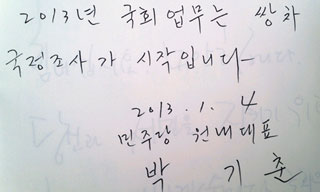 2013년 국회 업무는 쌍차
국정조사가 시작입니다
2013. 1. 4
민주당 원내대표
박 기 춘